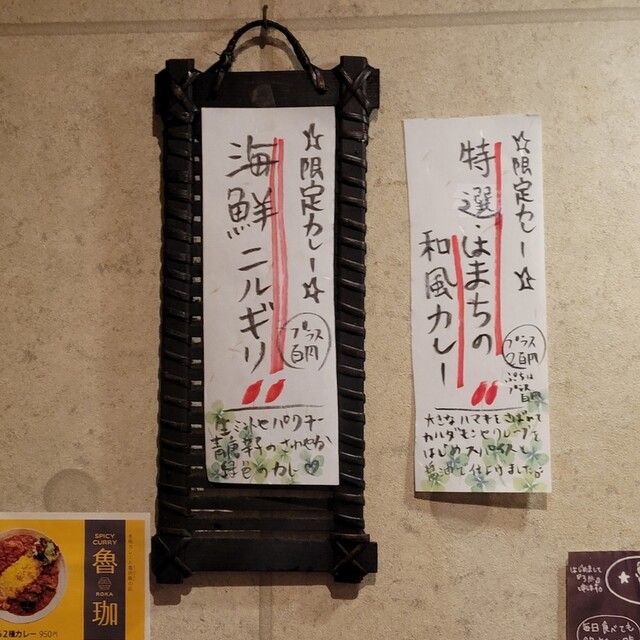 ☆限定カレー☆
特選・はまちの
和風カレー
プラス
2百円
ぷちは
プラス
百円
大きなハマチをさばいて
カルダモンとクローブを
はじめスパイスと
醤油で仕上げました
☆限定カレー☆
海鮮ニルギリ
プラス
百円
生ミントとパクチー
青唐辛子のさわやか
緑色のカレー♡
SPICY
CURRY
魯
ROKA
珈
2種カレー 950円
はじめまして
毎日食べても